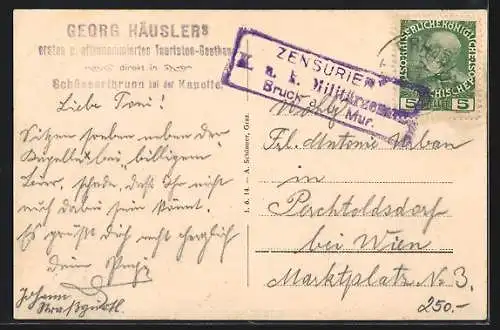 GEORG HÄUSLERS
ersten u. altrenommierten Touristen-Gasthaus
direkt in
Schüsserlbrunn bei der Kapelle
Liebe Toni!
Sitzen soeben neben der
Kapelle bei billigem
schade, daß Ihr nicht
auch dabei sein könnt.
Es grüßt Dich recht herzlich
Dein
Johann
ZENSURIERT
K. u. k. Militärzensur
Bruch a. Mur.
KAISERLICHE KÖNIGLICHE
ÖSTERREICHISCHE POST
5 5
1. 6. 14 - A. Schlauer, Graz.
Wohlg.
Frl. Antonie Urban
in
Perchtoldsdorf
bei Wien
Marktplatz No 3.
250.-